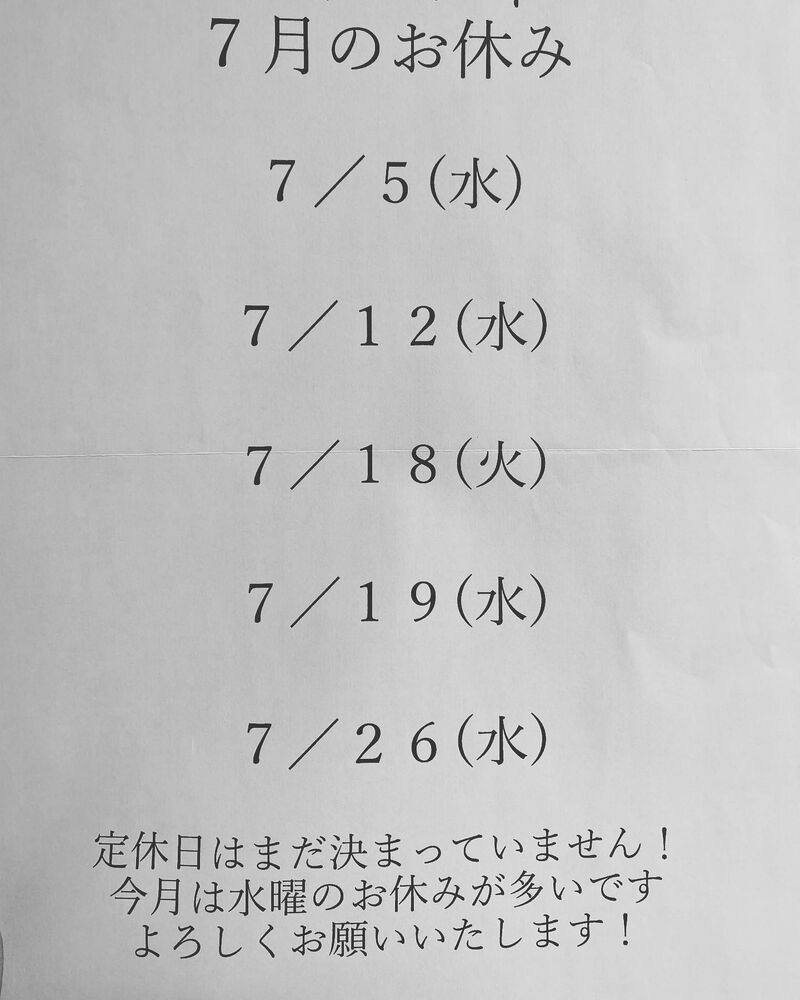 ７月のお休み
７／５(水)
７／１２(水)
７／１８(火)
７／１９(水)
７／２６(水)
定休日はまだ決まっていません！
今月は水曜のお休みが多いです
よろしくお願いいたします！